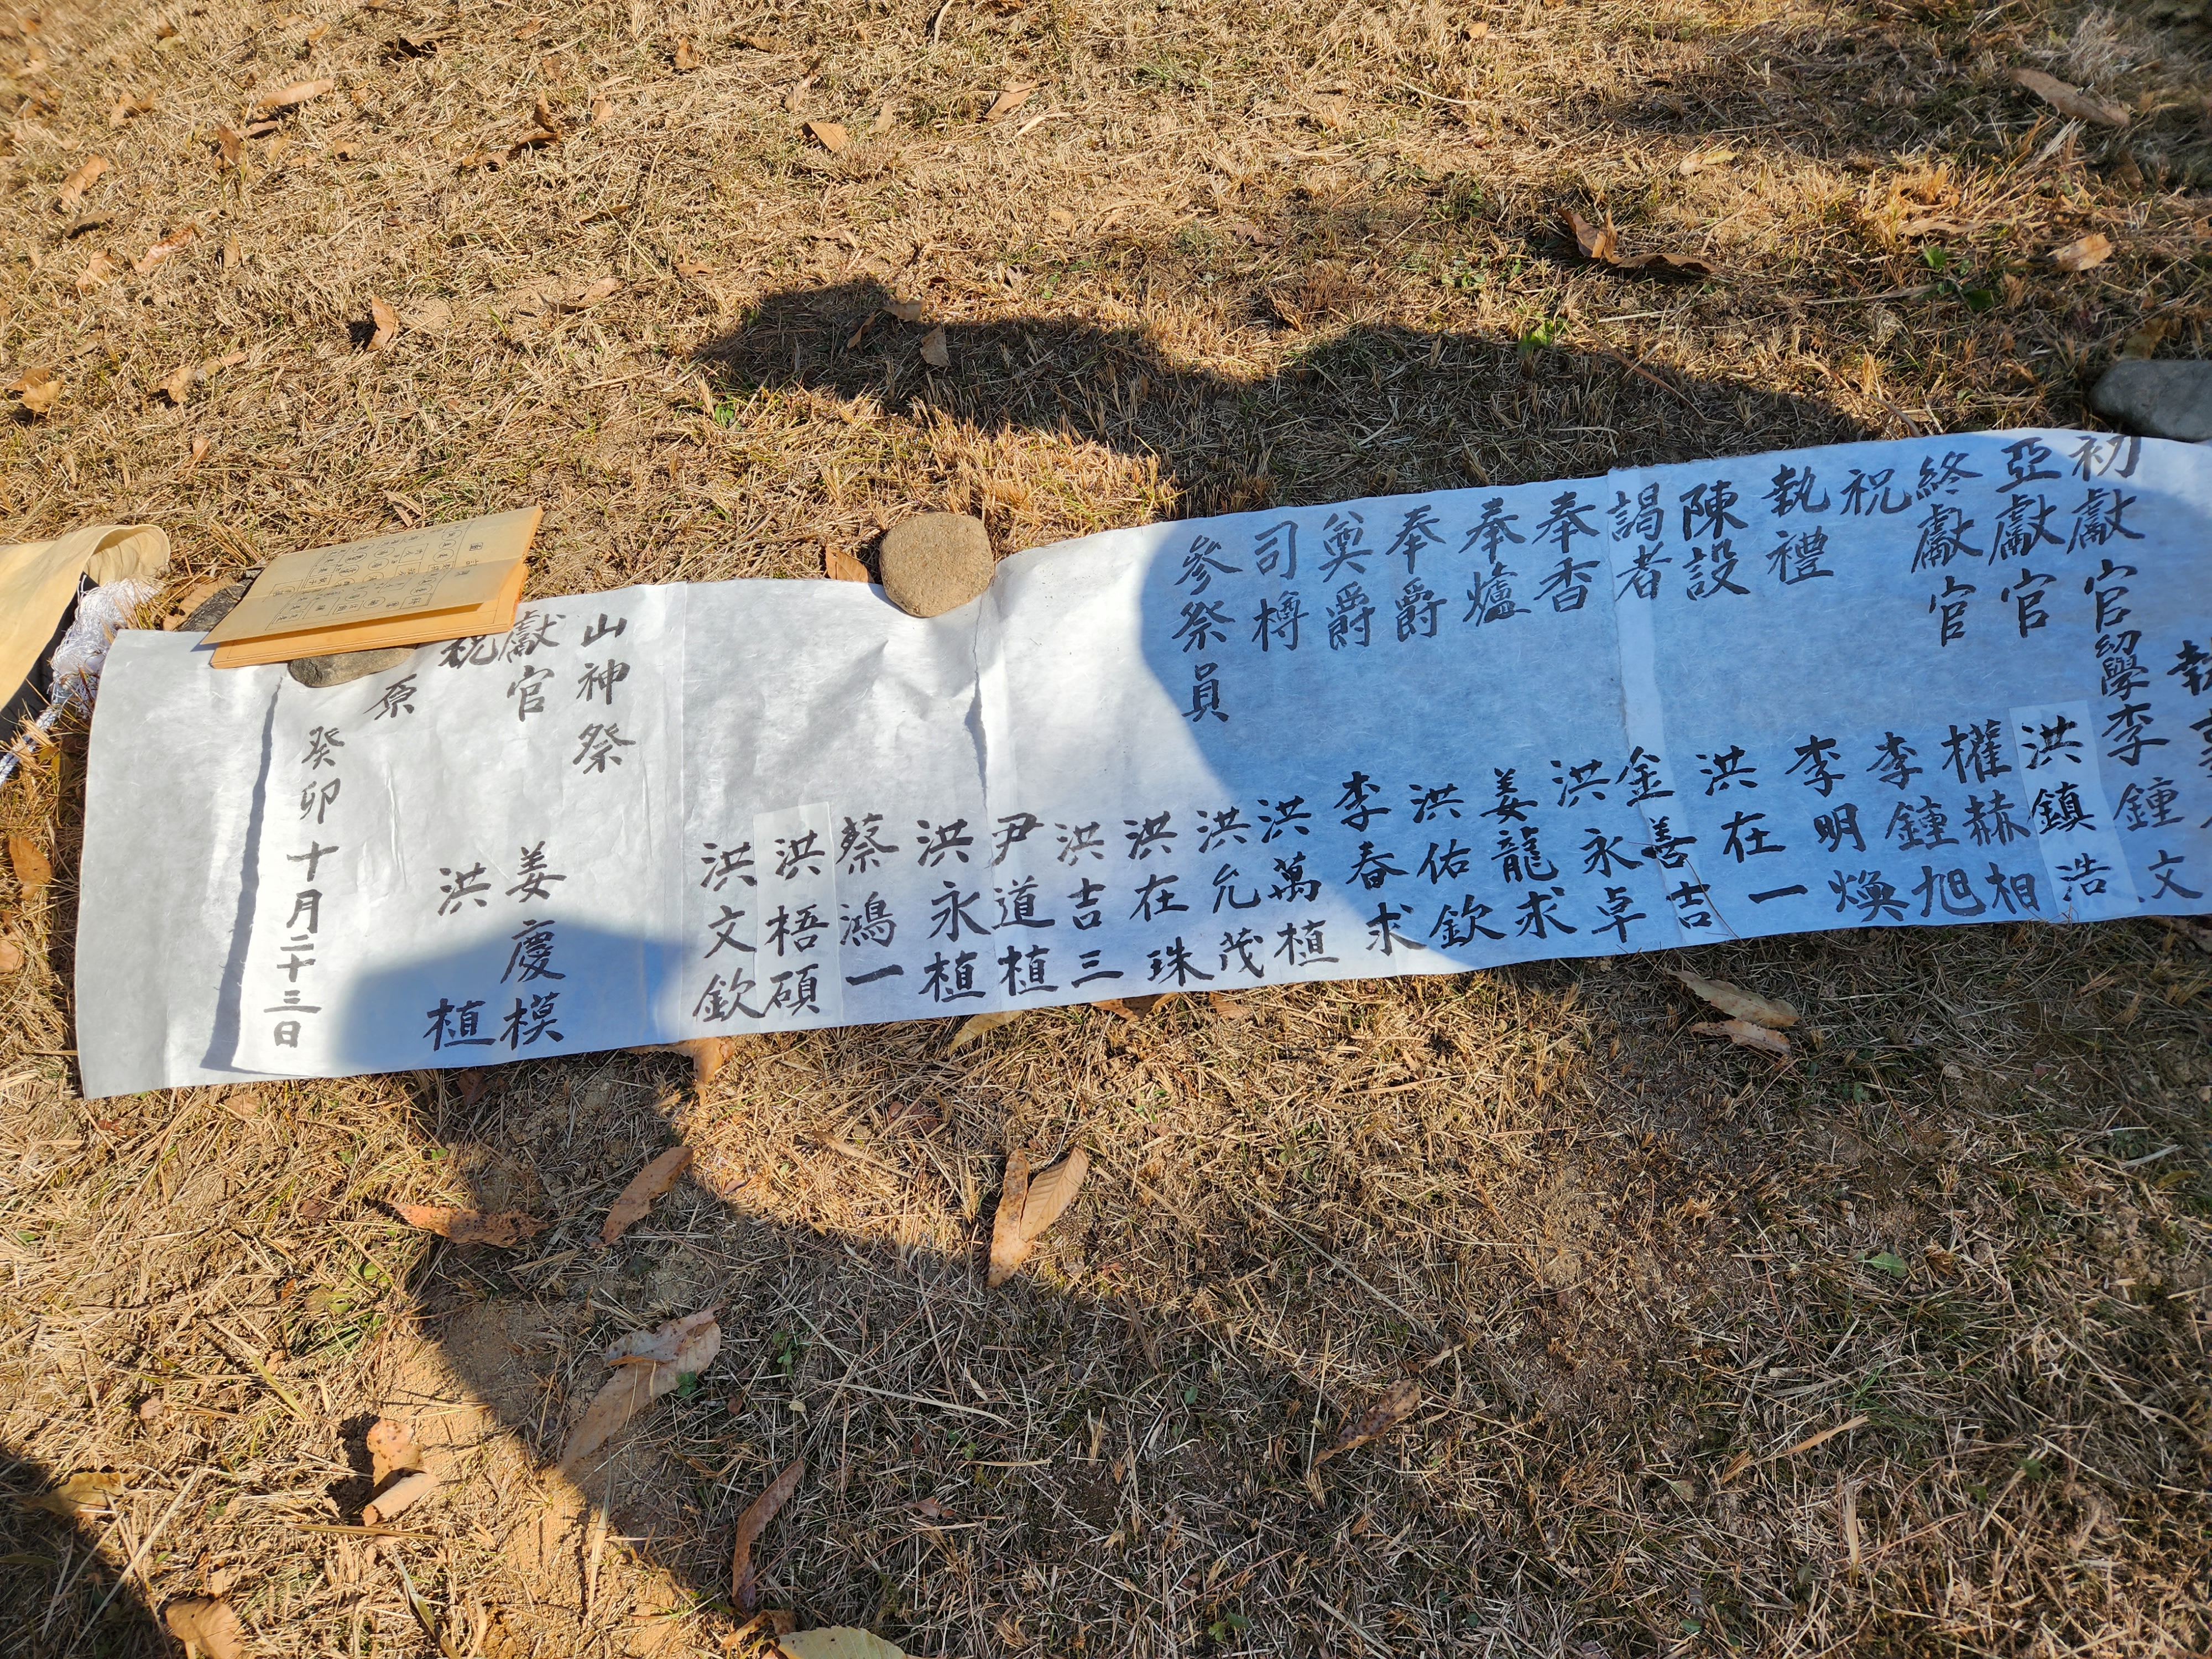 執
初獻官 幼學 李鍾文
亞獻官 洪鎭浩
終獻官 權赫相
祝 李鍾旭
執禮 李明煥
陳設 洪在一
謁者 金善吉
奉香 洪永卓
奉爐 姜龍求
奉爵 洪佑欽
奠爵 李春求
司樽 洪萬植
參祭員 洪允茂
洪在珠
洪吉三
尹道植
洪永植
蔡鴻一
洪梧碩
洪文欽
山神祭
獻官 姜慶模
祝 洪植
原
癸卯十月二十三日